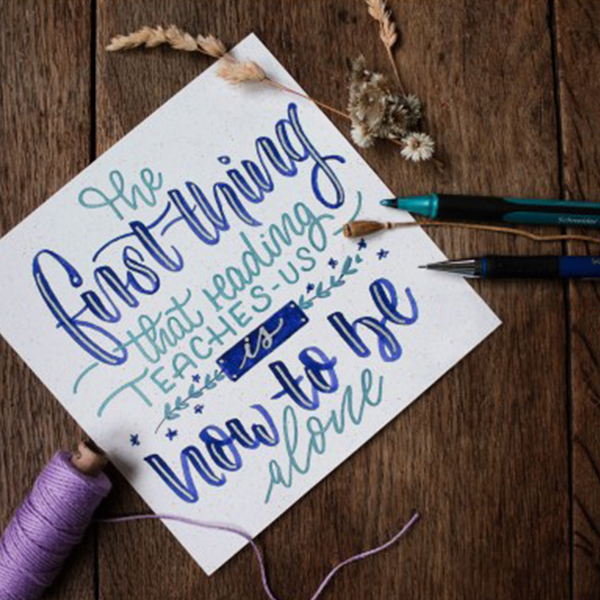 The
first thing
that reading
TEACHES-US
is
how to be
alone
Schneider